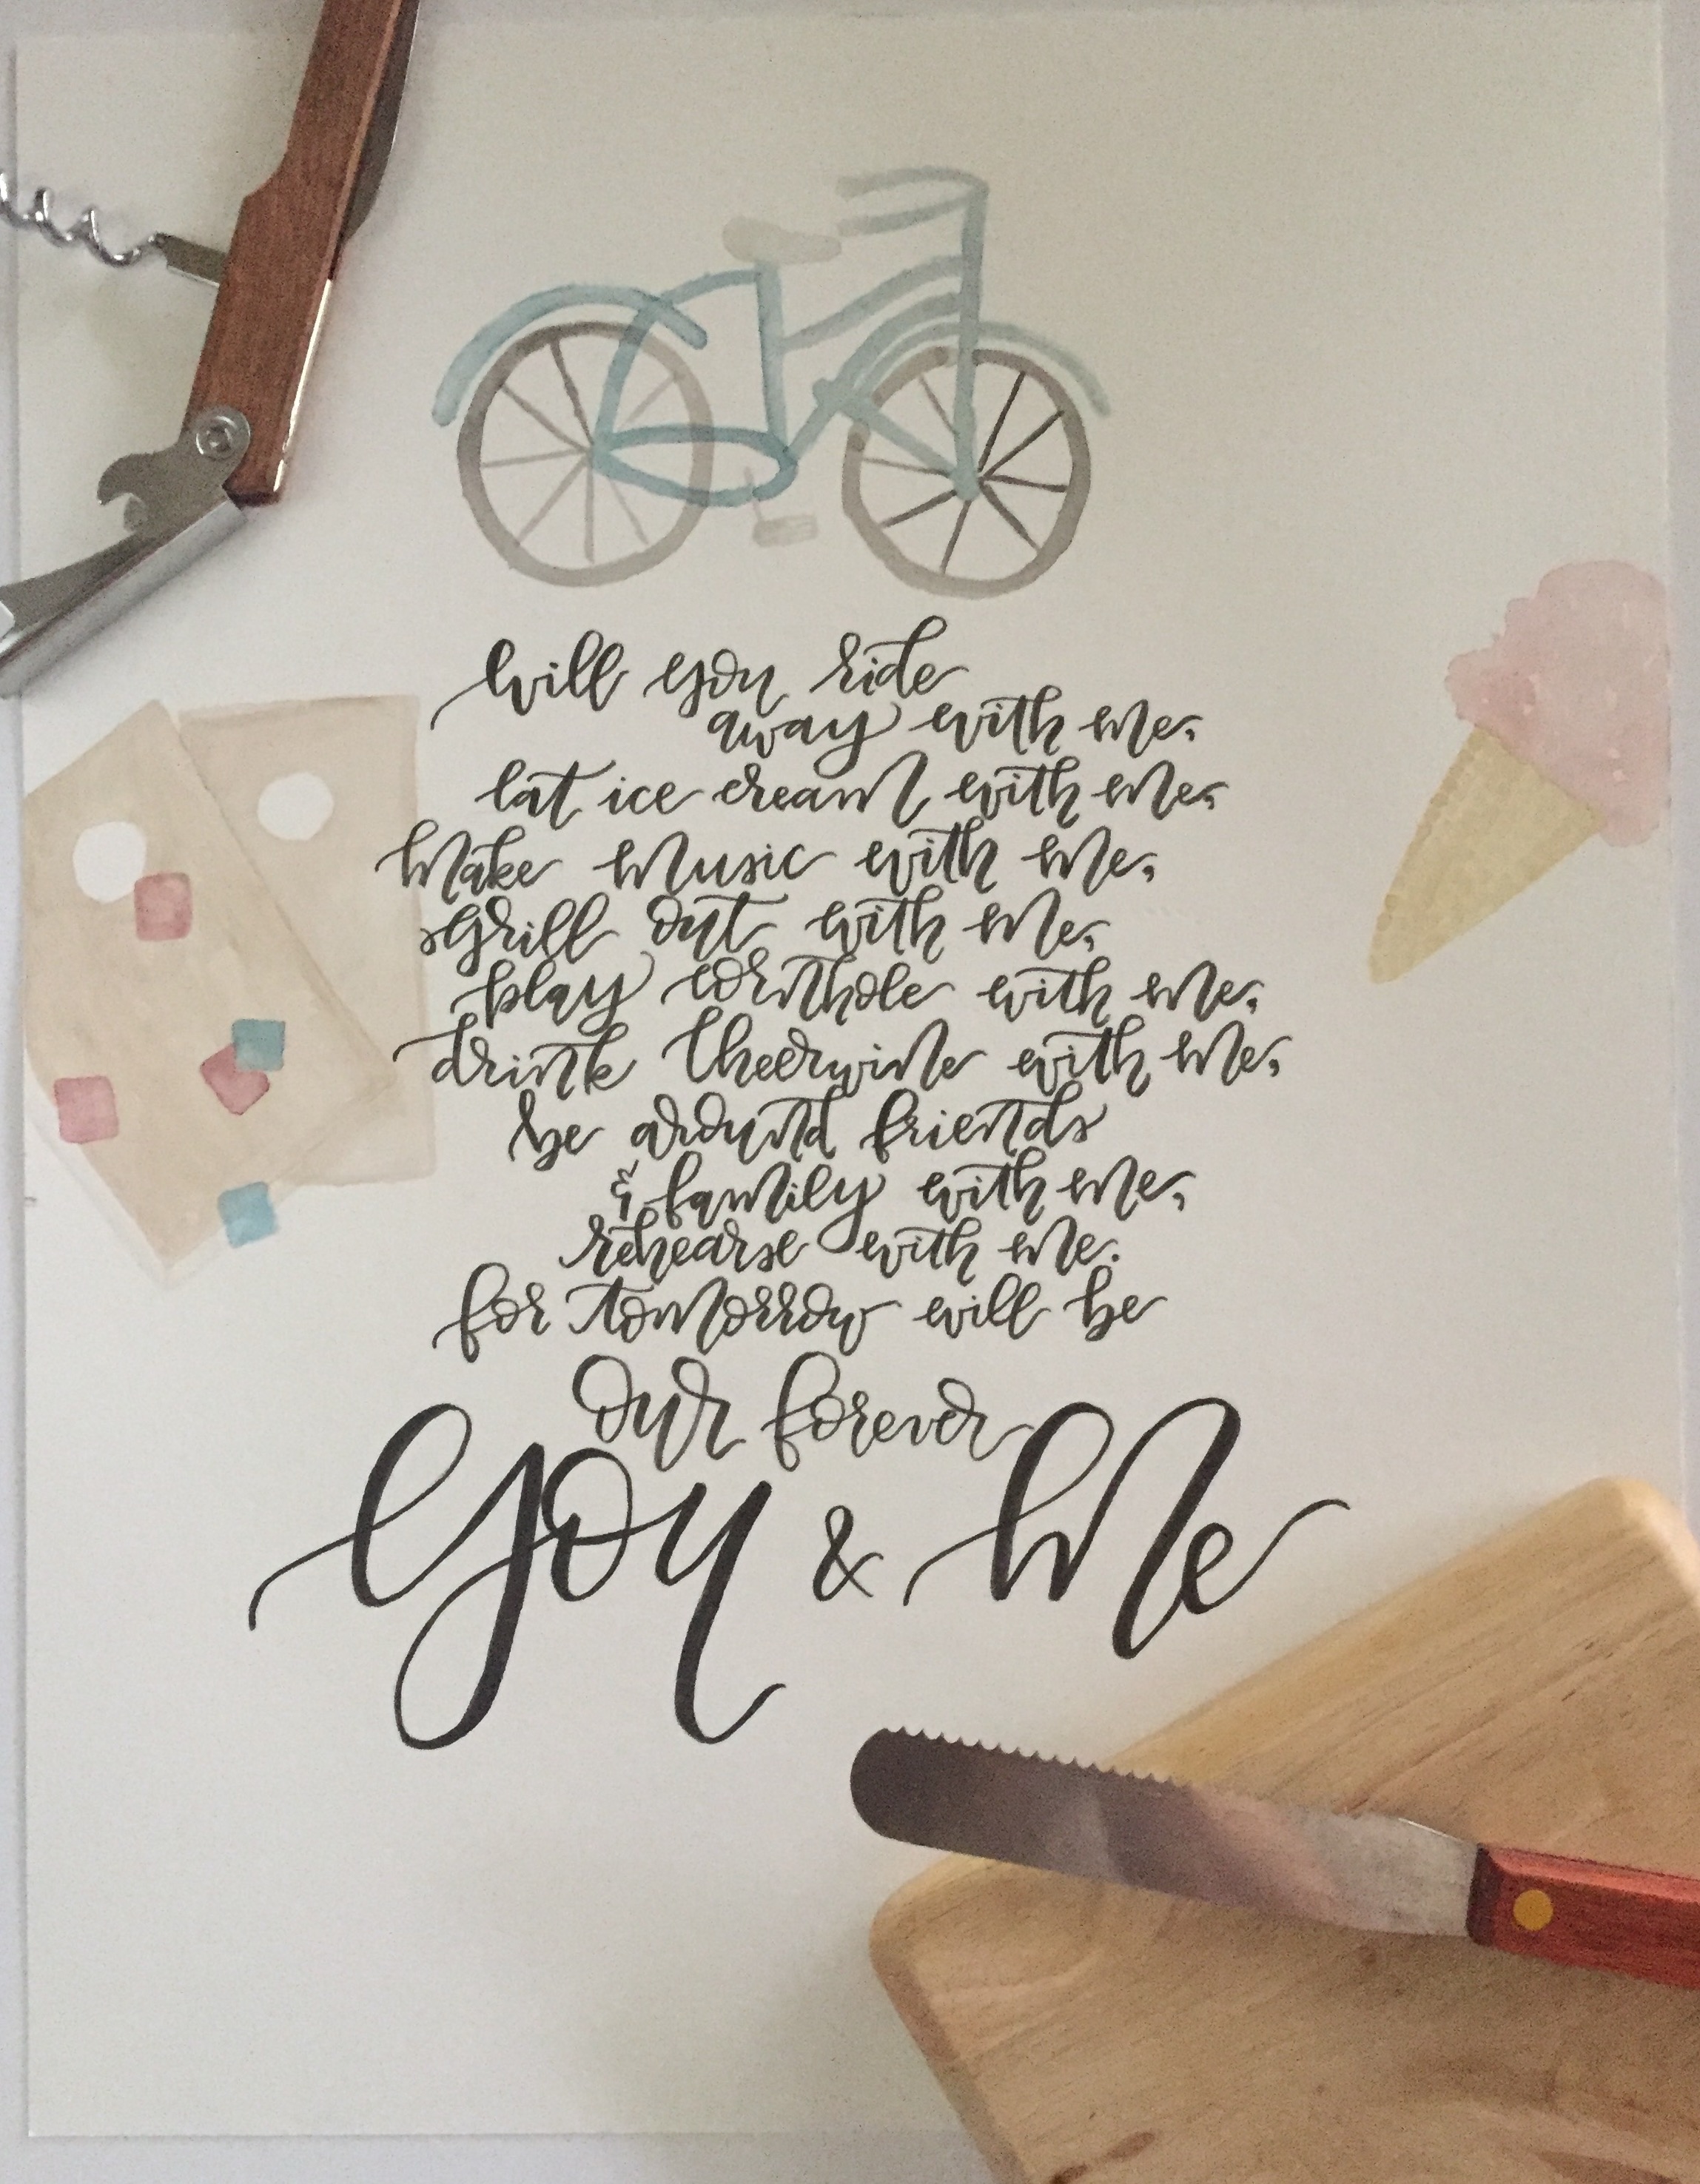 Will you ride
away with me,
Eat ice cream with me,
Make Music with me,
Grill out with me,
play cornhole with me,
drink Cheerwine with me,
be around friends
& family with me,
rehearse with me.
for tomorrow will be
Our forever
You & Me